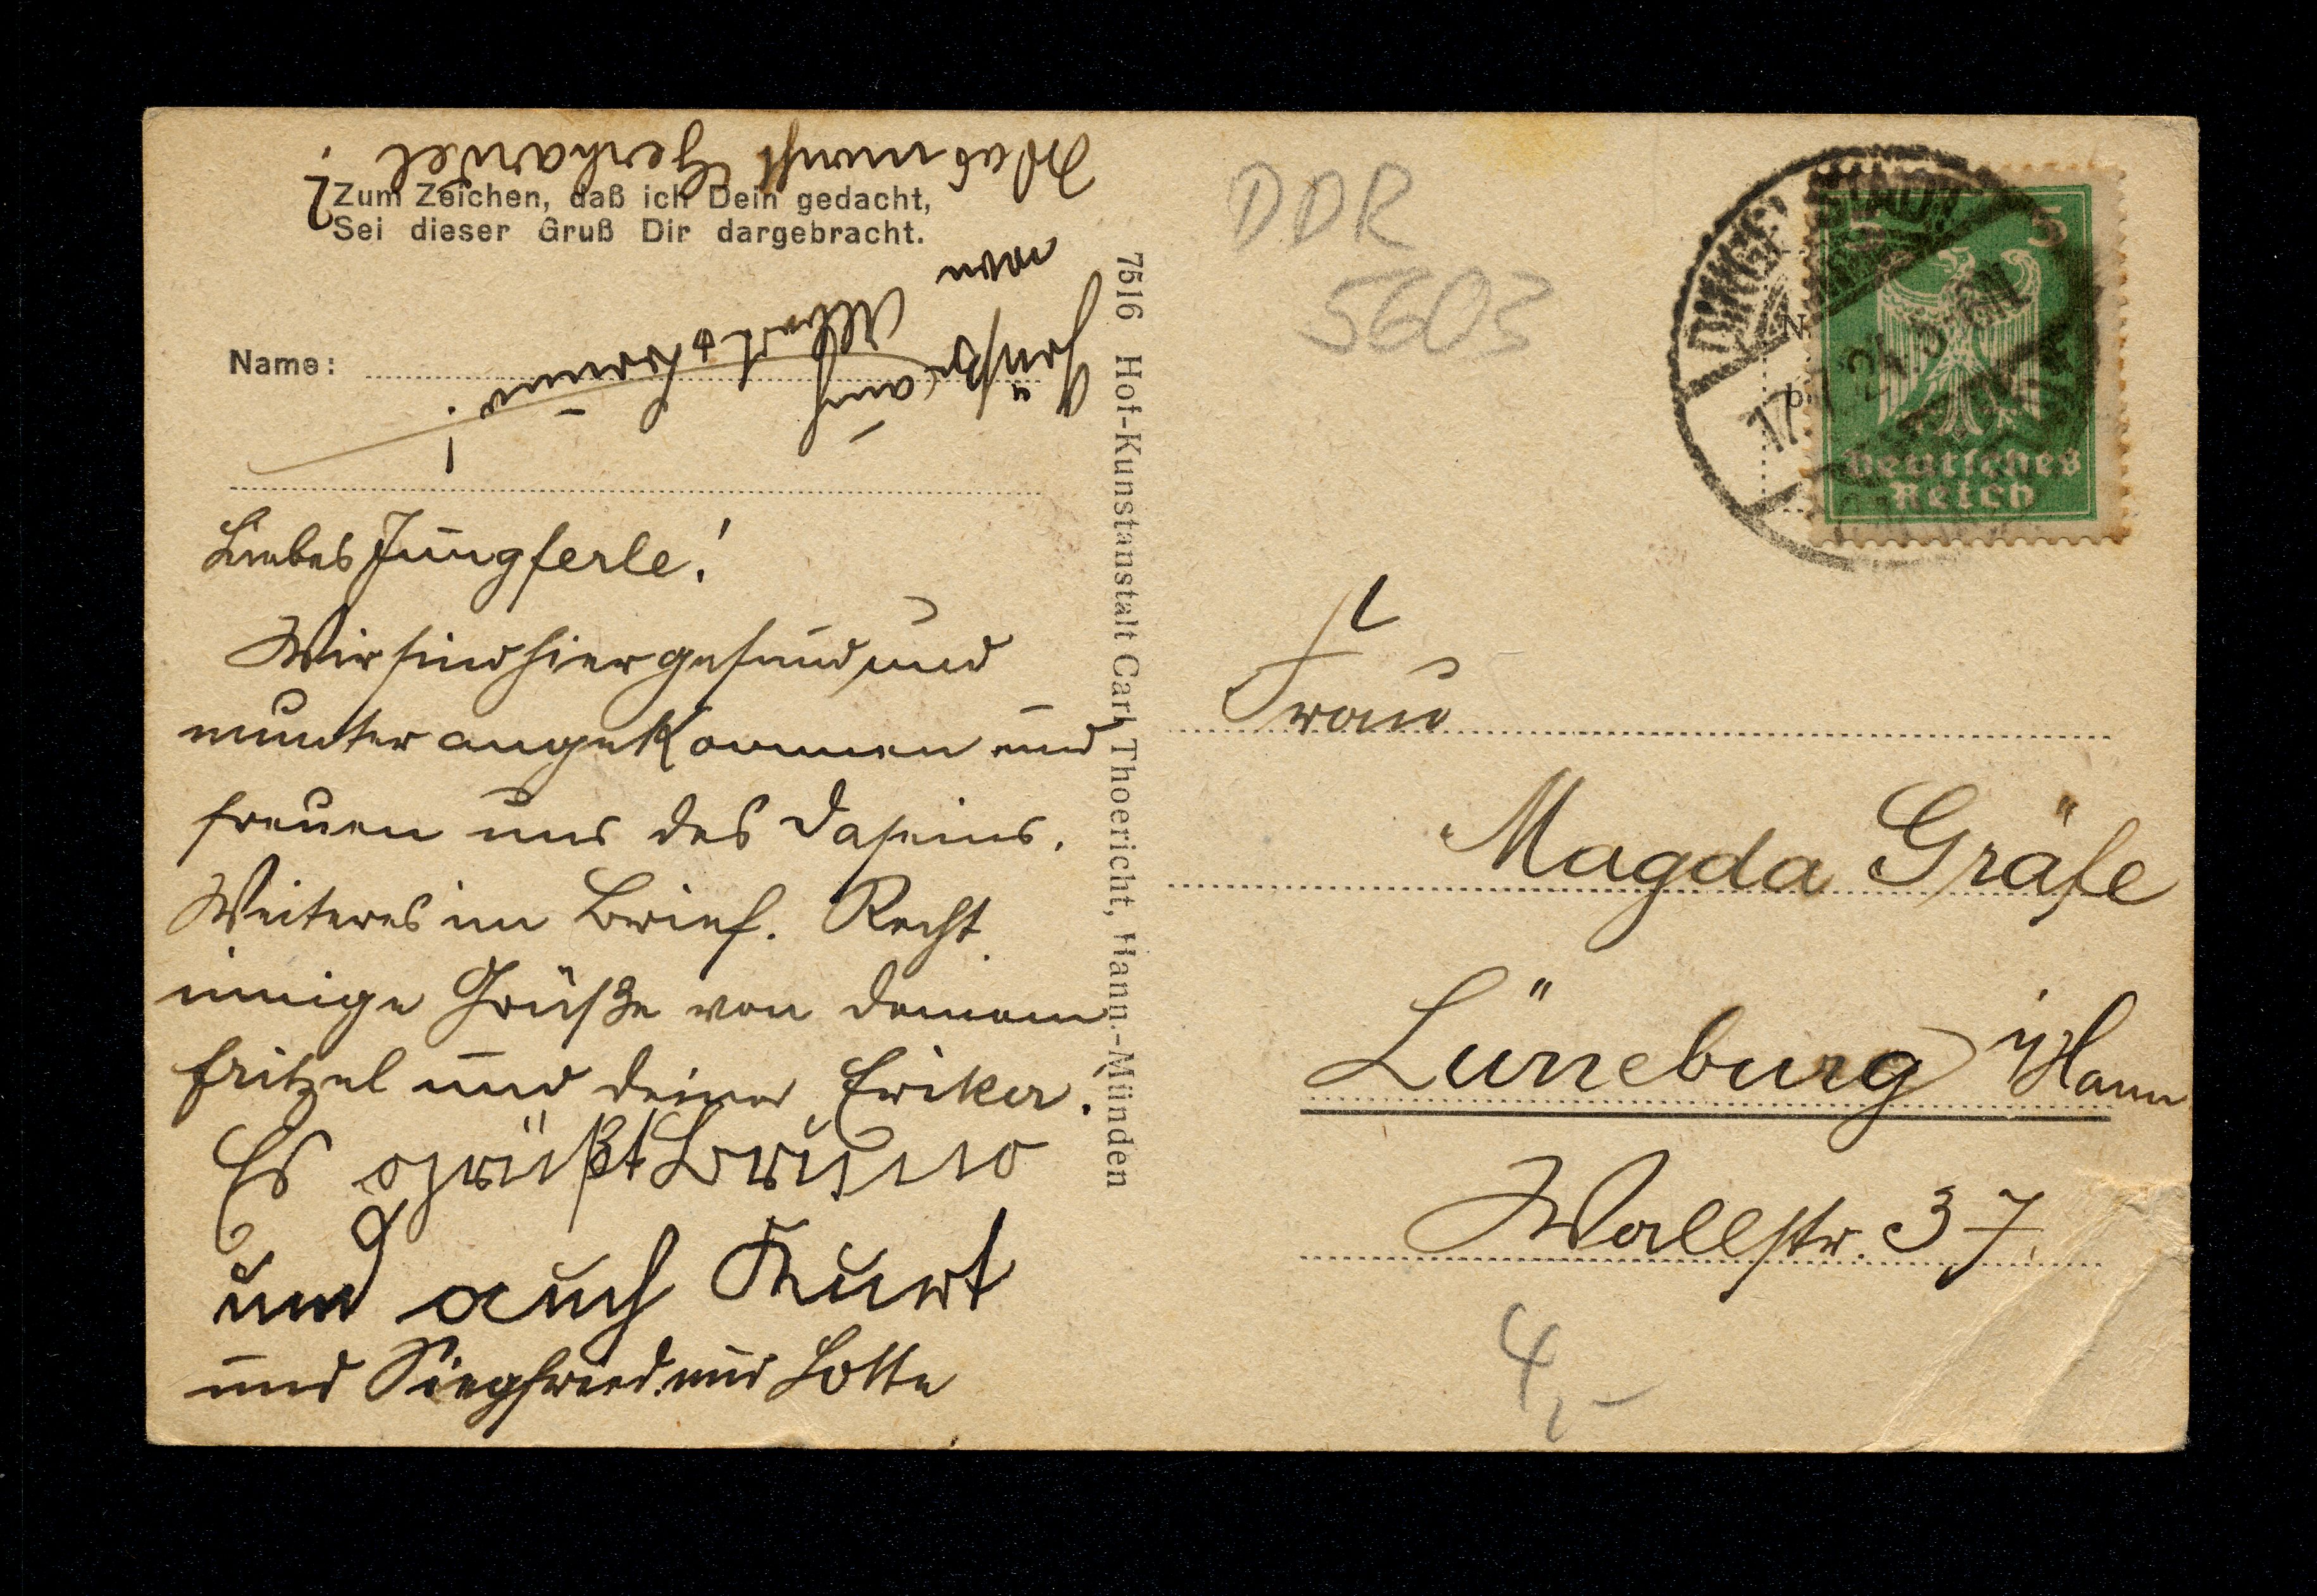 Was macht Gerhardel?
Zum Zeichen, daß ich Dein gedacht,
Sei dieser Gruß Dir dargebracht.
Name:
Grüße auch
von Albert
Liebes Jungferle!
Wir sind hier gesund und
munter angekommen und
freuen uns des Daseins.
Weiteres im Brief. Recht
innige Grüße von Deinem
Fritzel und deiner Erika.
Es grüßt Bruno
und auch Kurt
und Siegfried und Lotte
7516 Hof-Kunstanstalt Carl Thoericht, Hann.-Münden
DDR
5603
5 5
Deutsches
Reich
Frau
Magda Gräfe
Lüneburg i/Hann
Wallstr. 37.
4,-